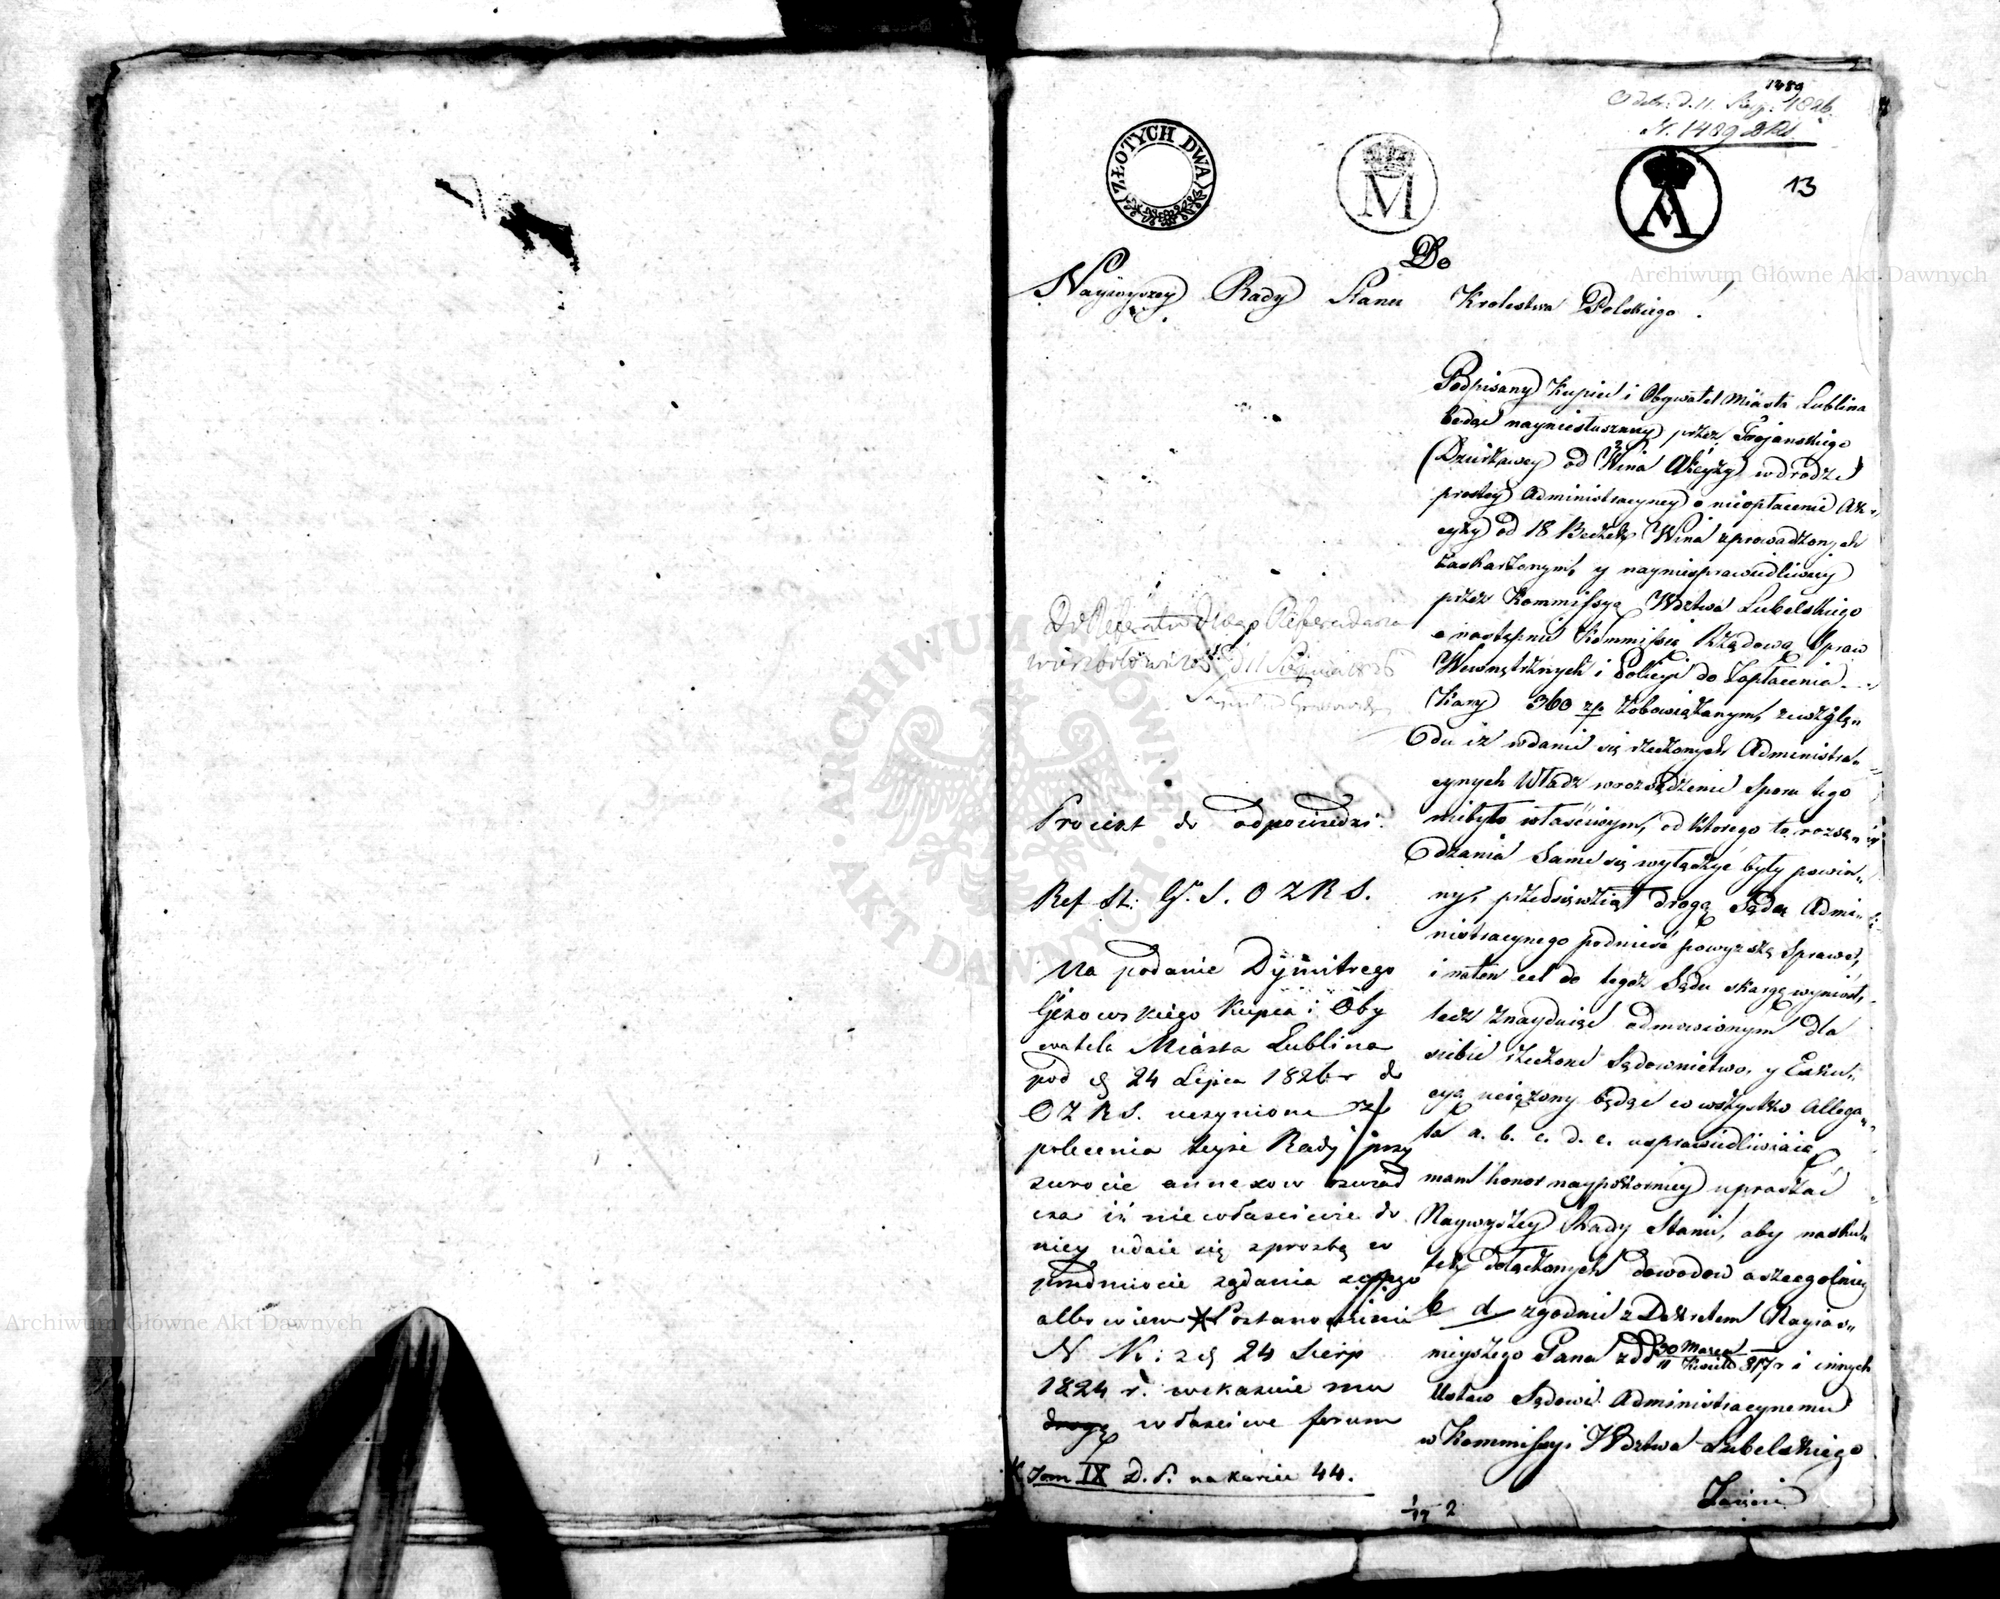 1489
Odebr. d. 11. Sierp. 1826.
N. 1489
ZŁOTYCH DWA
M
13
Do
Naywyzszey Rady Stanu Krolestwa Polskiego!
Podpisany Kupiec i Obywatel Miasta Lublina
będąc nayniesłuszniey przez Trojanskiego
Dzierżawcy od Wina Akcyzy w drodze
prostey Administracyiney o nieopłacenie Ak-
cyzy od 18 Beczek Wina sprowadzonych
zaskarżonym, y nayniesprawiedliwiey
przez Kommissyą Wdztwa Lubelskiego
a następnie Kommissią Rządową Spraw
Wewnętrznych i Policyi do Zapłacenia
Kary 360 zp. zobowiązanym, zewzglę„
du iż wdanie się rzeczonych Administra„
cyinych Władz w rozsądzenie sporu tego
niebyło właściwym, od którego to rozsą„
dzania same się wyłączyć były powin„
ny, przedsięwziął drogą Sądu Admi„
nistracyinego podnieść powyzszą Sprawę,
i na ten cel do tegoż Sądu skargę wyniósł,
lecz znayduiąc odmowionym dla
siebie rzeczone Sądownictwo, y Exeku„
cyą uciążony będąc co wszystko Allega„
ta a. b. c. d. e. usprawiedliwiaią
mam honor naypokorniey upraszać
Naywyższey Rady Stanu, aby na sku„
tek dołączonych dowodow a szczegolniey
b d zgodnie z Dekretem Nayiaś„
nieyszego Pana z dd 30 Marca / 11 Kwiet. 817 r i innych
Ustaw Sądowi Administracyinemu
w Kommissyi Wdztwa Lubelskiego
Do Referatu Referendarza
d 11 Sierpnia 1826
Proiekt do odpowiedzi.
Ref St: G. S. O Z R S.
Na podanie Dymitrego
Kupca i Oby
watela Miasta Lublina
pod d 24 Lipca 1826 r do
O Z R S. uczynione z
polecenia teyże Rady przy
zwrocie annexow oswiad
cza iż niewłasciwie do
niey udaie się z prozbą w
przedmiocie żądania swego
albowiem Postanowienie
N. K: z d 24 Sierp
1824 r. wskazuie mu
drogę własciwe forum
Tom IX D. P. na karcie 44.
Archiwum Główne Akt Dawnych
Archiwum Główne Akt Dawnych
ARCHIWUM GŁÓWNE AKT DAWNYCH